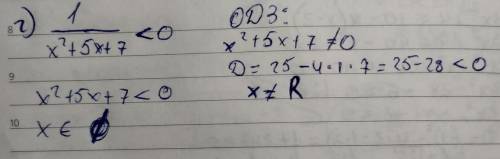 г) 1/(x²+5x+7) < 0
ОДЗ:
x²+5x+7 ≠ 0
D = 25 - 4·1·7 = 25 - 28 < 0
x ≠ R
x²+5x+7 < 0
x ∈ ∅
8
9
10